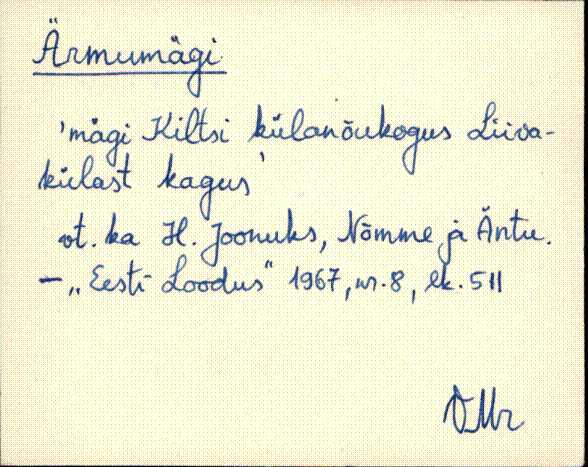 Ärmumägi
'mägi Kiltsi külanõukogus Liiva-
külast kagus'
vt. ka H. Joonuks, Nõmme ja Äntu.
– „Eesti Loodus" 1967, nr. 8, lk. 511